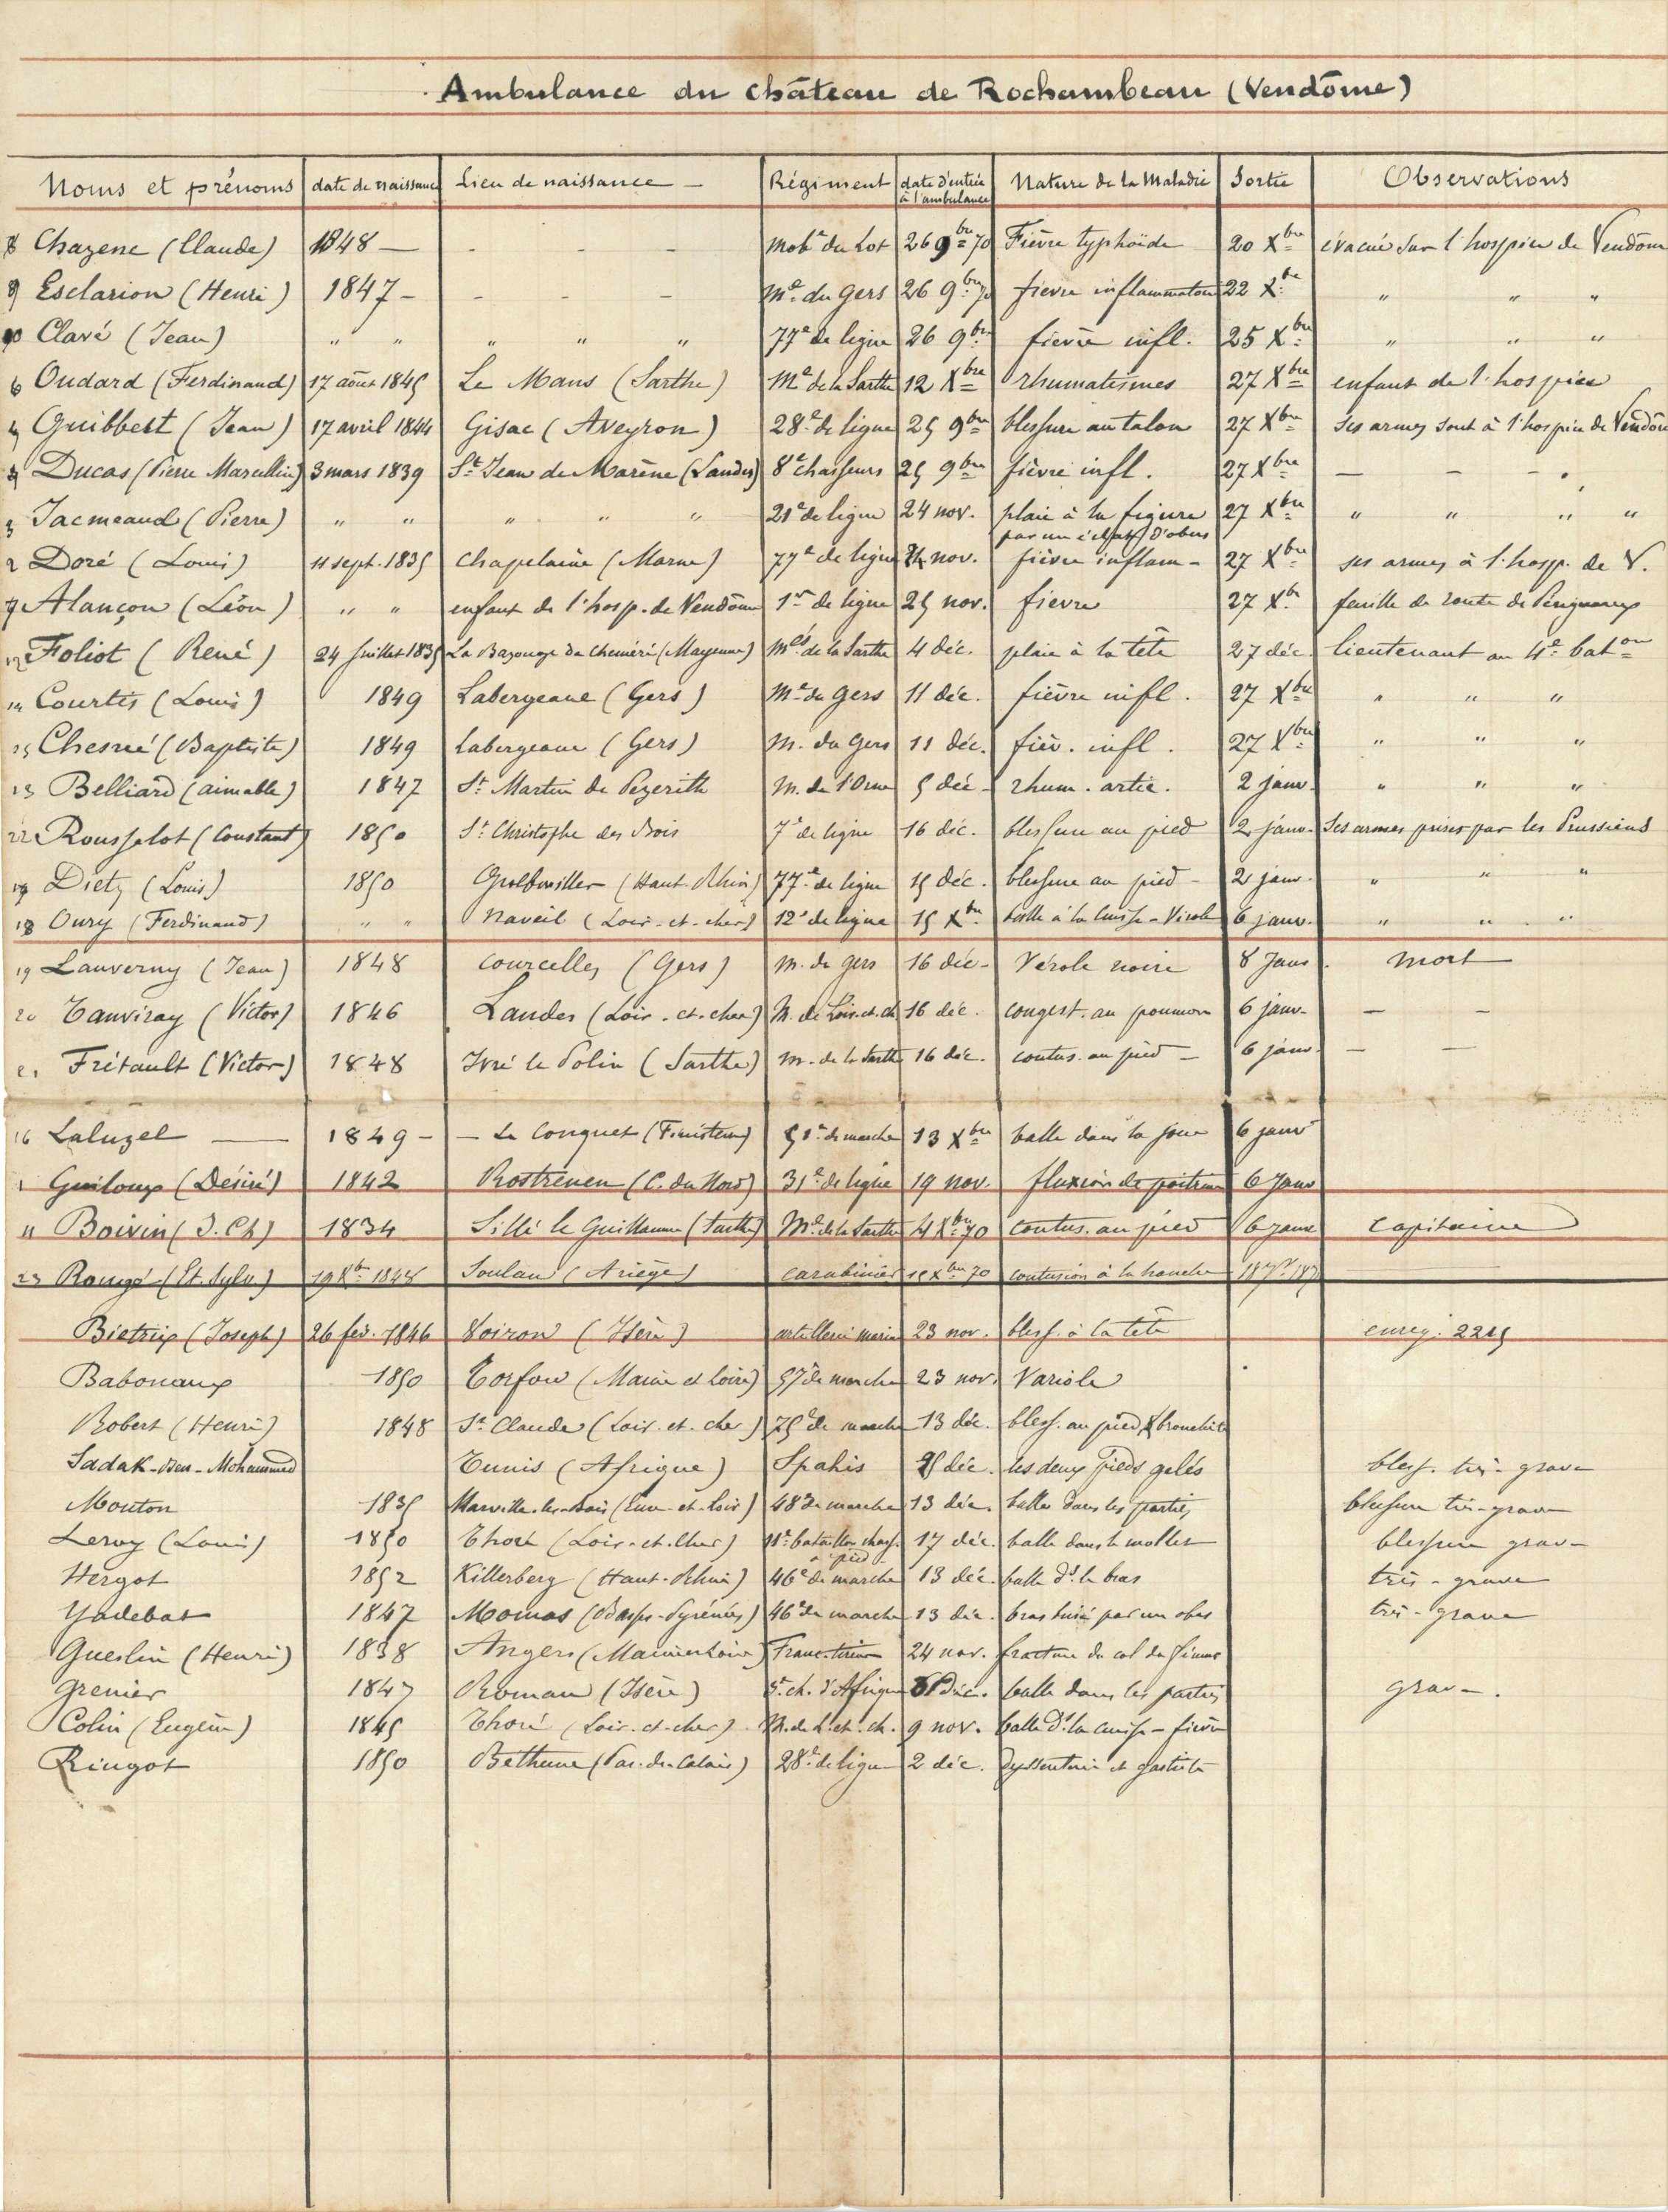 Ambulance du château de Rochambeau (Vendôme)
Noms et prénoms | date de naissance | Lieu de naissance — | Régiment | date d'entrée à l'ambulance | Nature de la Maladie | Sortie | Observations
8 Chazene (Claude) | 1848 — | - - - | Mobe du Lot | 26 9bre 70 | Fièvre typhoïde | 20 Xbre | évacué sur l'hospice de Vendôme
9 Esclarion (Henri) | 1847 - | - - - | Me du Gers | 26 9bre 70 | fièvre inflammatoire | 22 Xbre | " " "
10 Clavé (Jean) | " " | " " | 77e de ligne | 26 9bre | fièvre infl. | 25 Xbre | " " "
6 Oudard (Ferdinand) | 17 août 1845 | Le Mans (Sarthe) | Me de la Sarthe | 12 Xbre | rhumatismes | 27 Xbre | enfant de l'hospice
4 Guibbert (Jean) | 17 avril 1844 | Gisac (Aveyron) | 28e de ligne | 25 9bre | blessure au talon | 27 Xbre | ses armes sont à l'hospice de Vendôme
Ducas (Pierre Marcellin) | 3 mars 1839 | St Jean de Marène (Landes) | 8e chasseurs | 25 9bre | fièvre infl. | 27 Xbre | — - - .
3 Jacmeaud (Pierre) | " " | " " " | 21e de ligne | 24 nov. | plaie à la figure | 27 Xbre | " " " "
par un éclat d'obus
2 Doré (Louis) | 11 sept. 1835 | Chapelaine (Marne) | 77e de ligne | 24 nov. | fièvre inflam - | 27 Xbre | ses armes à l'hosp. de V.
7 Alançon (Léon) | " " | enfant de l'hosp. de Vendôme | 1er de ligne | 25 nov. | fièvre | 27 Xbre | feuille de route de Périgueux
12 Foliot (René) | 24 Juillet 1835 | La Bazouge de Cheméré (Mayenne) | Mes de la Sarthe | 4 déc. | plaie à la tête | 27 déc. | lieutenant au 4e baton
14 Courtès (Louis) | 1849 | Labergeane (Gers) | Me du Gers | 11 déc. | fièvre infl. | 27 Xbre | " " "
15 Chesné (Baptiste) | 1849 | Labergeane (Gers) | M. du Gers | 11 déc. | fièv. infl. | 27 Xbre | " " "
13 Belliard (aimable) | 1847 | St Martin de Pezerith | M. de l'Orne | 5 déc - | rhum. artic. | 2 janv. | " " "
22 Rousselot (Constant) | 1850 | St Christophe des Bois | 7e de ligne | 16 déc. | blessure au pied | 2 janv. | Ses armes prises par les Prussiens
17 Dietz (Louis) | 1850 | (Haut-Rhin) | 77e de ligne | 15 déc. | blessure au pied - | 2 janv. | " " "
18 Oury (Ferdinand) | " " | Naveil (Loir-et-cher) | 12e de ligne | 15 Xbre | balle à la cuisse - Vérole | 6 janv. | " " "
19 Lauverny (Jean) | 1848 | Courcelles (Gers) | M. du Gers | 16 déc - | Vérole noire | 8 Janv. | mort
20 Tanviray (Victor) | 1846 | Landes (Loir-et-cher) | M. de Loir-et-ch | 16 déc. | congest. au poumon | 6 janv. | — -
21 Frétault (Victor) | 1848 | Yvré le Polin (Sarthe) | M. de la Sarthe | 16 déc. | contus. au pied - | 6 janv. | — —
16 Laluzel — | 1849 - | - Le Conquet (Finistère) | 51e de marche | 13 Xbre | balle dans la joue | 6 janv
1 Guiloux (Désiré) | 1842 | Rostrenen (C. du Nord) | 31e de ligne | 19 nov. | fluxion de poitrine | 6 Janv
11 Boivin (J. Ch) | 1834 | Sillé le Guillaume (Sarthe) | Me de la Sarthe | 4 Xbre 70 | contus. au pied | 6 janv | Capitaine
23 Rougé (Et. Sylv.) | 19 Xbre 1848 | Soulan (Ariège) | carabinier | 15 Xbre 70 | contusion à la hanche
Bietrix (Joseph) | 26 fév. 1846 | Voiron (Isère) | artillerie marine | 23 nov. | bless. à la tête | enreg. 2215
Babonaux | 1850 | Torfou (Maine et Loire) | 57e de marche | 23 nov. | Variole
Robert (Henri) | 1848 | St Claude (Loir-et-cher) | 75e de marche | 13 déc. | bless. au pied & bronchite
Sadak-Ben-Mohammed | Tunis (Afrique) | Spahis | 25 déc. | les deux pieds gelés | bless. très-grave
Mouton | 1835 | Marville-les-Bois (Eure-et-Loir) | 48e de marche | 13 déc. | balle dans les parties | blessure très-grave
Leroy (Louis) | 1850 | Thoré (Loir-et-Cher) | 11e bataillon chass. à pied | 17 déc. | balle dans le mollet | blessure grave
Hergot | 1852 | Killerberg (Haut-Rhin) | 46e de marche | 13 déc. | balle ds le bras | très-grave
Yadebat | 1847 | Momas (Basses-Pyrénées) | 46e de marche | 13 déc. | bras brisé par un obus | très-grave
Gueslin (Henri) | 1838 | Angers (Maine et Loire) | Franc-tireur | 24 nov. | fracture du col du fémur
Grenier | 1847 | Romans (Isère) | ch. d'Afrique | déc. | balle dans les parties | grave.
Colin (Eugène) | 1845 | Thoré (Loir-et-cher) | M. de L.-et-ch. | 9 nov. | balle ds la cuisse - fièvre
Ringot | 1850 | Béthune (Pas-de-Calais) | 28e de ligne | 2 déc. | dyssenterie et gastrite